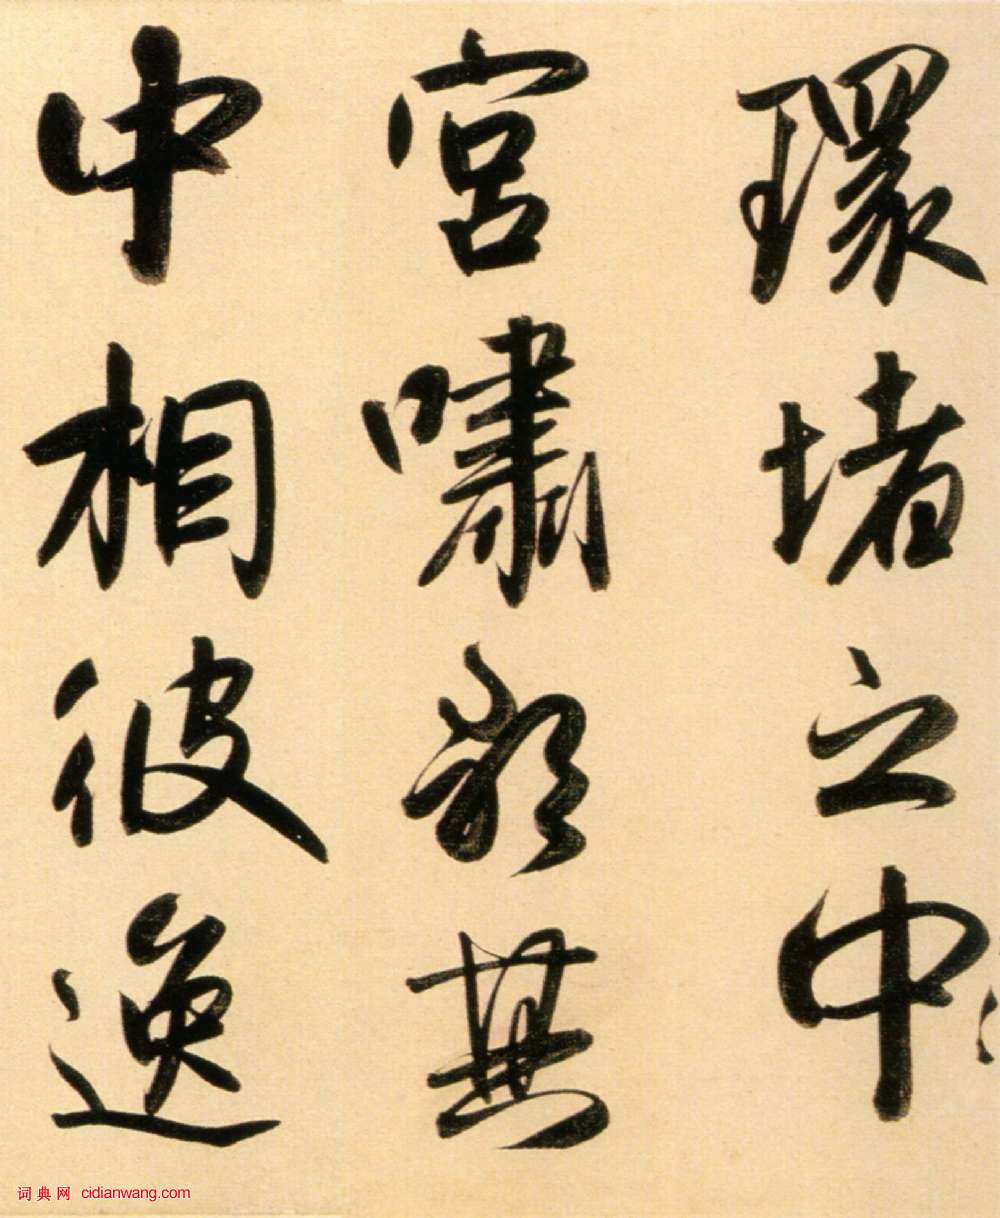 環堵之中
宮嘯歌無
中相彼逸
词典网 cidianwang.com